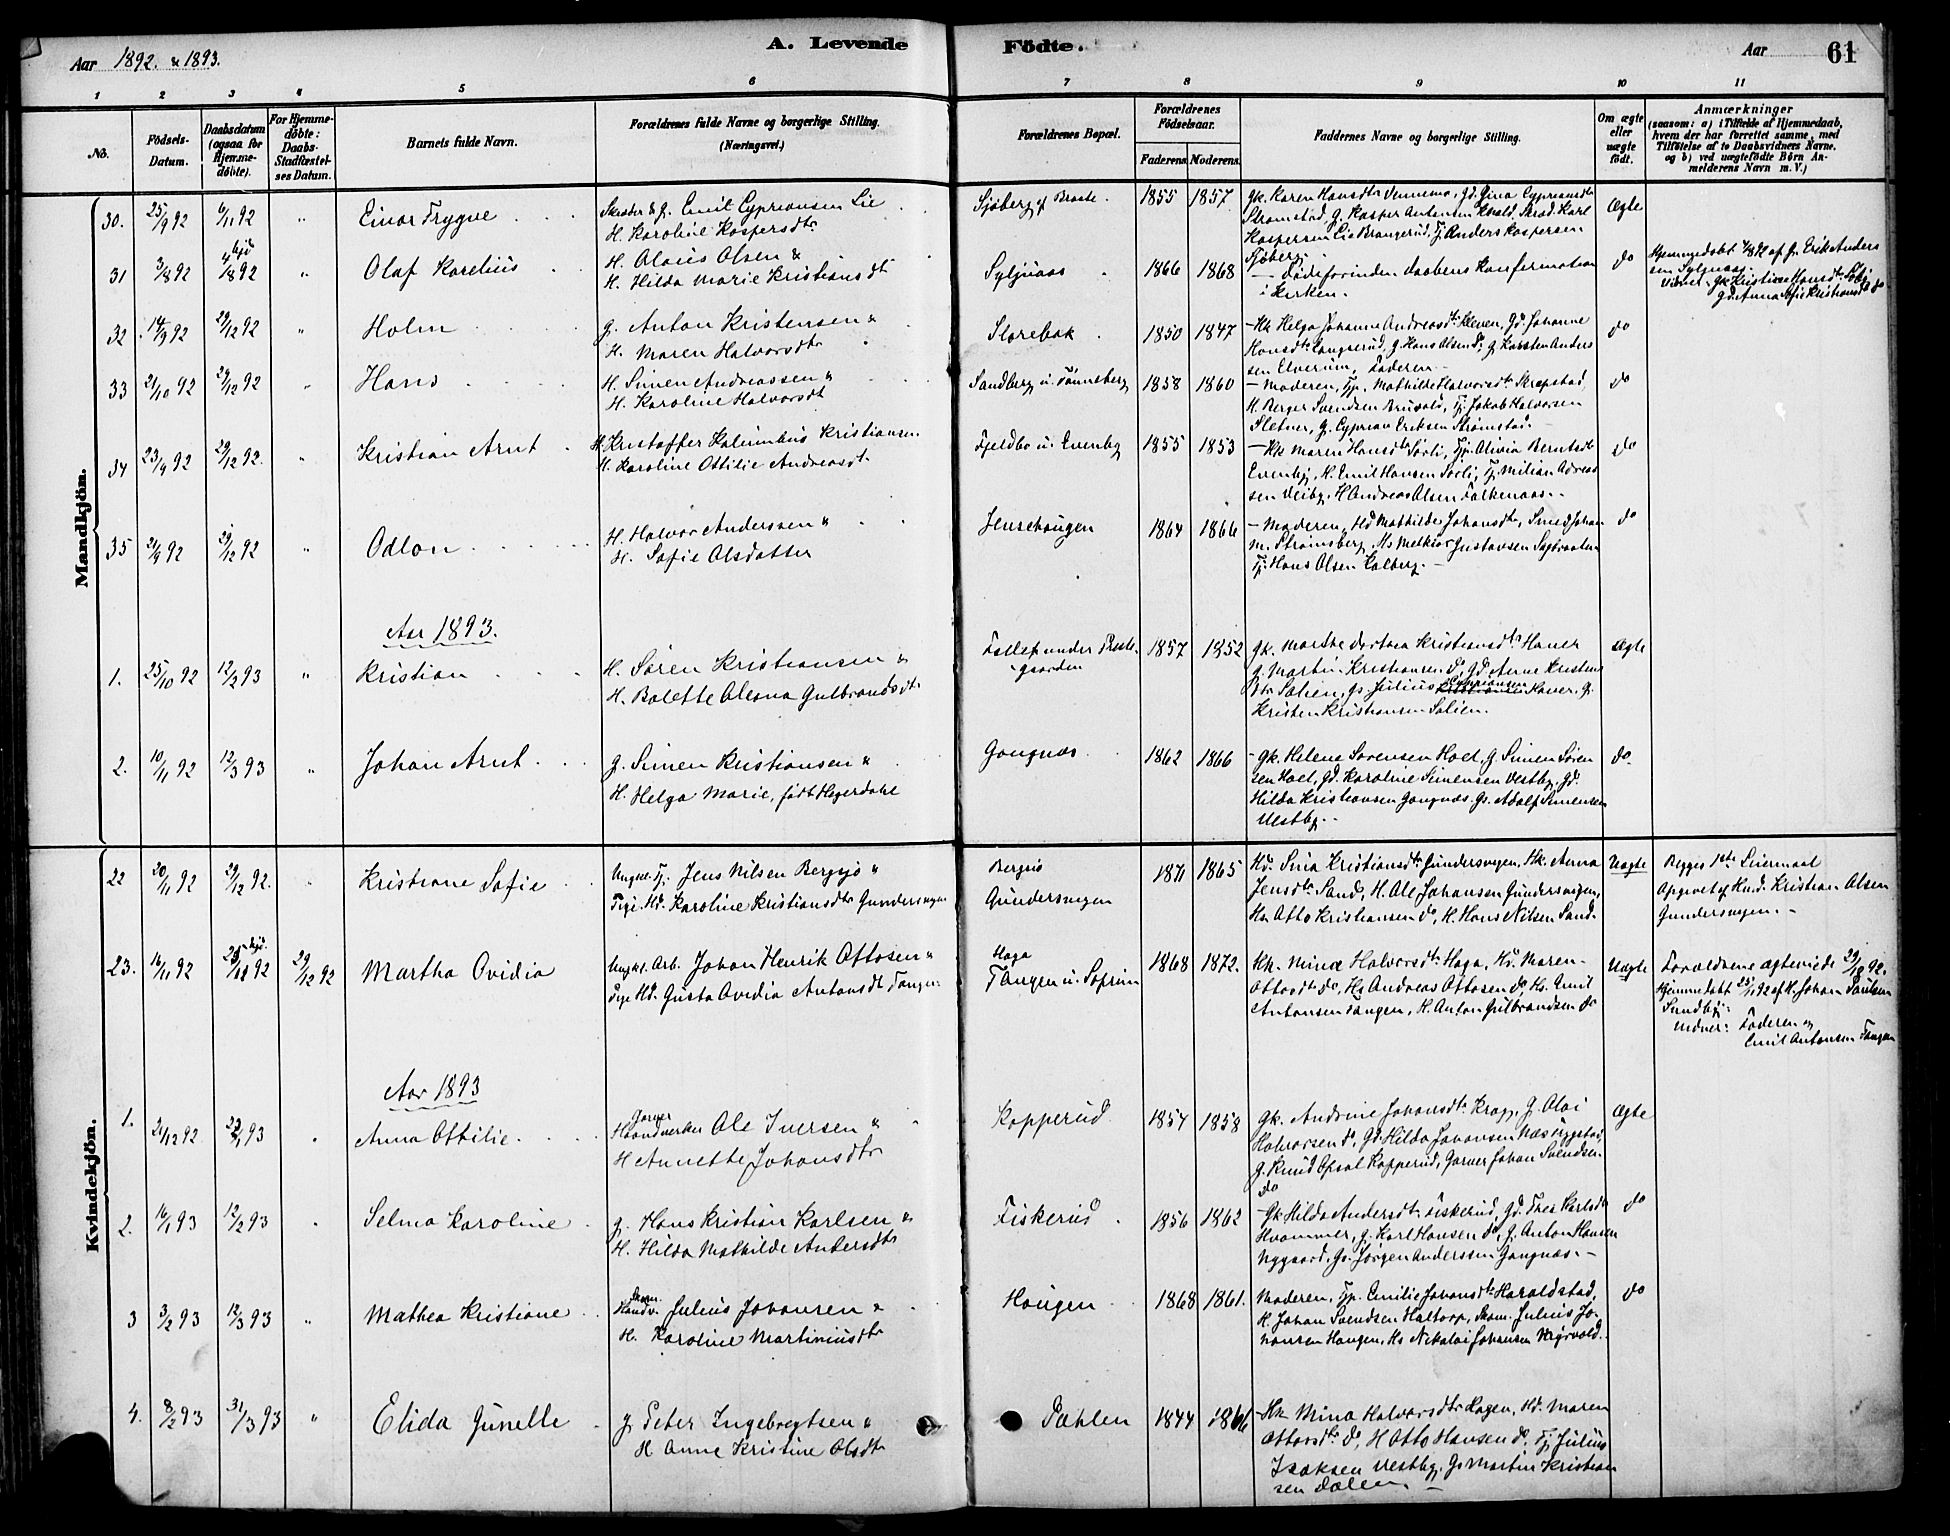 Aar 1892. & 1893.
A. Levende Födte.
Aar 61
1 2 3 4 5 6 7 8 9 10 11
No.
Födsels-Datum.
Daabsdatum (ogsaa for Hjemme-döbte).
For Hjemme-döbte: Daabs-Stadfæstel-ses Datum.
Barnets fulde Navn.
Forældrenes fulde Navne og borgerlige Stilling. (Næringsvei.)
Forældrenes Bopæl.
Forældrenes Födselsaar.
Faderens. Moderens.
Faddernes Navne og borgerlige Stilling.
Om ægte eller uægte födt.
Anmærkninger
(saasom: a) i Tilfælde af Hjemmedaab,
hvem der har forrettet samme, med
Tilföielse af to Daabsvidners Navne,
og b) ved uægtefödte Börn An-
melderens Navn m. V.)
Mandkjön.
30. 25/9 92 6/11 92 " Einar Trygve
Skræder & G. Emil Cypriansen Lie
H. Karoline Kaspersdtr
Sjöberg af Braate 1855 1857
Gk. Karen Hansdtr Vennemo, Gd. Gina Cypriansdtr
Strømstad, G. Kasper Antonsen Kvald, Skræd. Karl
Kaspersen Lie Brangerud, Tj. Anders Kaspersen
Sjöberg.
Ægte
31 3/8 92 hjd 4/8 92 " Olaf Karelius
H. Olaus Olsen &
H. Hilda Marie Kristiansdt
Syljuaas 1866 1868
— Døde forinden Daabens Konfirmation
i Kirken.
do
Hjemmedøbt 4/8 92 af G. Erik Anders
sen Syljuaas.
Vidner: Gk. Kristine Hansdtr
Gd. Anna Sofie Kristiansdt do
32 14/9 92 29/12 92 " Holm
G. Anton Kristensen &
H. Maren Halvorsdtr
Slorebak 1850 1847
— Hk. Helga Johanne Andreasdtr Kleven, Gd. Johanne
Hansdtr Langserud, G. Hans Olsen do, G. Karsten Anders
sen Elverum, Faderen.
do
33 21/10 92 29/12 92 " Hans
H. Simen Andreassen &
H. Karoline Halvorsdt
Sandberg u. Tønneberg 1858 1860
— Moderen, Tj. Mathilde Halvorsdtr Skrepstad,
H. Berger Svendsen Brusald, Tj. Jakob Halvorsen
Sletner, G. Cyprian Eriksen Strømstad.
do
34 23/9 92 29/12 92. " Kristian Arnt
H. Kristoffer Kalumbus Kristiansen
H. Karoline Ottilie Andreasdt
Fjeldbo u. Evenby 1855 1853
— Hk. Maren Hansdtr Sørli, Tj. Olivia Berntsdt
Evenby, H. Emil Hansen Sørli, Tj. Milian Adreas
sen Veiby, H. Andreas Olsen Falkenaas.
do
35 21/9 92 29/12 92 " Odlon
H. Halvor Anderssen &
H. Sofie Olsdatter
1864 1866
— Moderen, Hd. Mathilde Johansdtr, Smed Johan
M. Strømsberg, Ms. Melkior Gustavsen Sagbraaten
Tj. Hans Olsen Kalberg.
do
Aar 1893.
1. 25/10 92 12/2 93 " Kristian
H. Søren Kristiansen &
H. Bolette Olesna Gulbrandsdt
under Præste-
gaarden 1857 1852
Gk. Marthe Dortea Kristiansdtr Haver
G. Martin Kristiansen do, Gd. Anne Kristens
dtr Solien, Gs. Julius Cypriansen Haver, G.
Kristen Kristiansen Solien.
Ægte
2. 10/11 92 12/3 93 " Johan Arnt
G. Simen Kristiansen &
H. Helga Marie, født Hegerdahl
Gangnæs 1862 1866
— Gk. Helene Sørensen Hoel, G. Simen Søren
sen Hoel, Gd. Karoline Simensen Vestby, Gd.
Hilda Kristiansen Gangnæs, Gs. Adolf Simensen
Vestby.
do.
Kvindekjön.
22 20/11 92 29/12 92. " Kristiane Sofie
Ungkl. Tj. Jens Nilsen Bergsjø &
Pige Hd. Karoline Kristiansdtr Gundersvegen
Bergsjø
Gundersvegen 1871 1865
Hd. Sina Kristiansdtr Gundersvegen, Hk. Anna
Jensdtr Sand, H. Ole Johansen Gundersvegen,
Hs. Otto Kristiansen do, H. Hans Nilsen Sand.
Uægte
Begges 1ste Leiermaal
Opgivet af Husd. Kristian Olsen
Gundersvegen.
23. 16/11 92 hjd. 25/11 92 29/12 92 Martha Ovidia
Ungkl. Arb. Johan Henrik Ottosen &
Pige Hd. Gusta Ovidia Antonsdt Tangen
Haga
Tangen u. Soprim 1868 1872.
Hk. Mina Halvorsdtr Haga, Hd. Maren
Ottosdtr do, Hs. Andreas Ottosen do, Hs. Emil
Antonsen Tangen, H. Anton Gulbrandsen do
Uægte
Forældrene ægteviede 29/12 92.
Hjemmedøbt 25/11 92 af H. Johan Paulsen
Sundby.
Vidner: Faderen og
Emil Antonsen Tangen
Aar 1893
1. 21/12 92 22/1 93 " Anna Ottilie
Garver
Haandverker Ole Iversen &
H. Annette Johansdtr
Kopperud 1854 1858
Gk. Andrine Johansdtr Kragg, G. Olai
Halvorsen do, Gd. Hilda Johansen Næs Rygstad,
G. Knud Opsal Kopperud, Garver Johan Svendsen
do
Ægte
2. 16/1 93 12/2 93 " Selma Karoline
G. Hans Kristian Karlsen &
H. Hilda Mathilde Andersdtr
Fiskerud 1856 1862
— Gk. Hilda Andersdtr Fiskerud, Gd. Thea Karlsdt
Kvammer, G. Karl Hansen do, G. Anton Hansen
Nygaard, Gs. Jørgen Anderssen Gangnæs.
do
3 3/2 93 12/3 93 " Mathea Kristiane
Skom.
Handv. Julius Johansen &
H. Karoline Martiniusdtr
Haugen 1868 1861.
Moderen, Tj. Emilie Johansdtr Haraldstad,
H. Johan Svendsen Haltorp, Skom. Julius Jo-
hansen Haugen, Hs. Nikolai Johansen Mørvold.
do
4. 8/2 93 31/3 93 " Elida Gunelle
G. Peter Ingebregtsen &
H. Anne Kristine Olsdtr
Dahlen 1844 1866
Hk. Mina Halvorsdtr Hagen, Hd. Maren
Ottosdtr do, H. Otto Hansen do, Tj. Julius
Isaksen Vestby, Gs. Martin Kristian
sen Dalen.